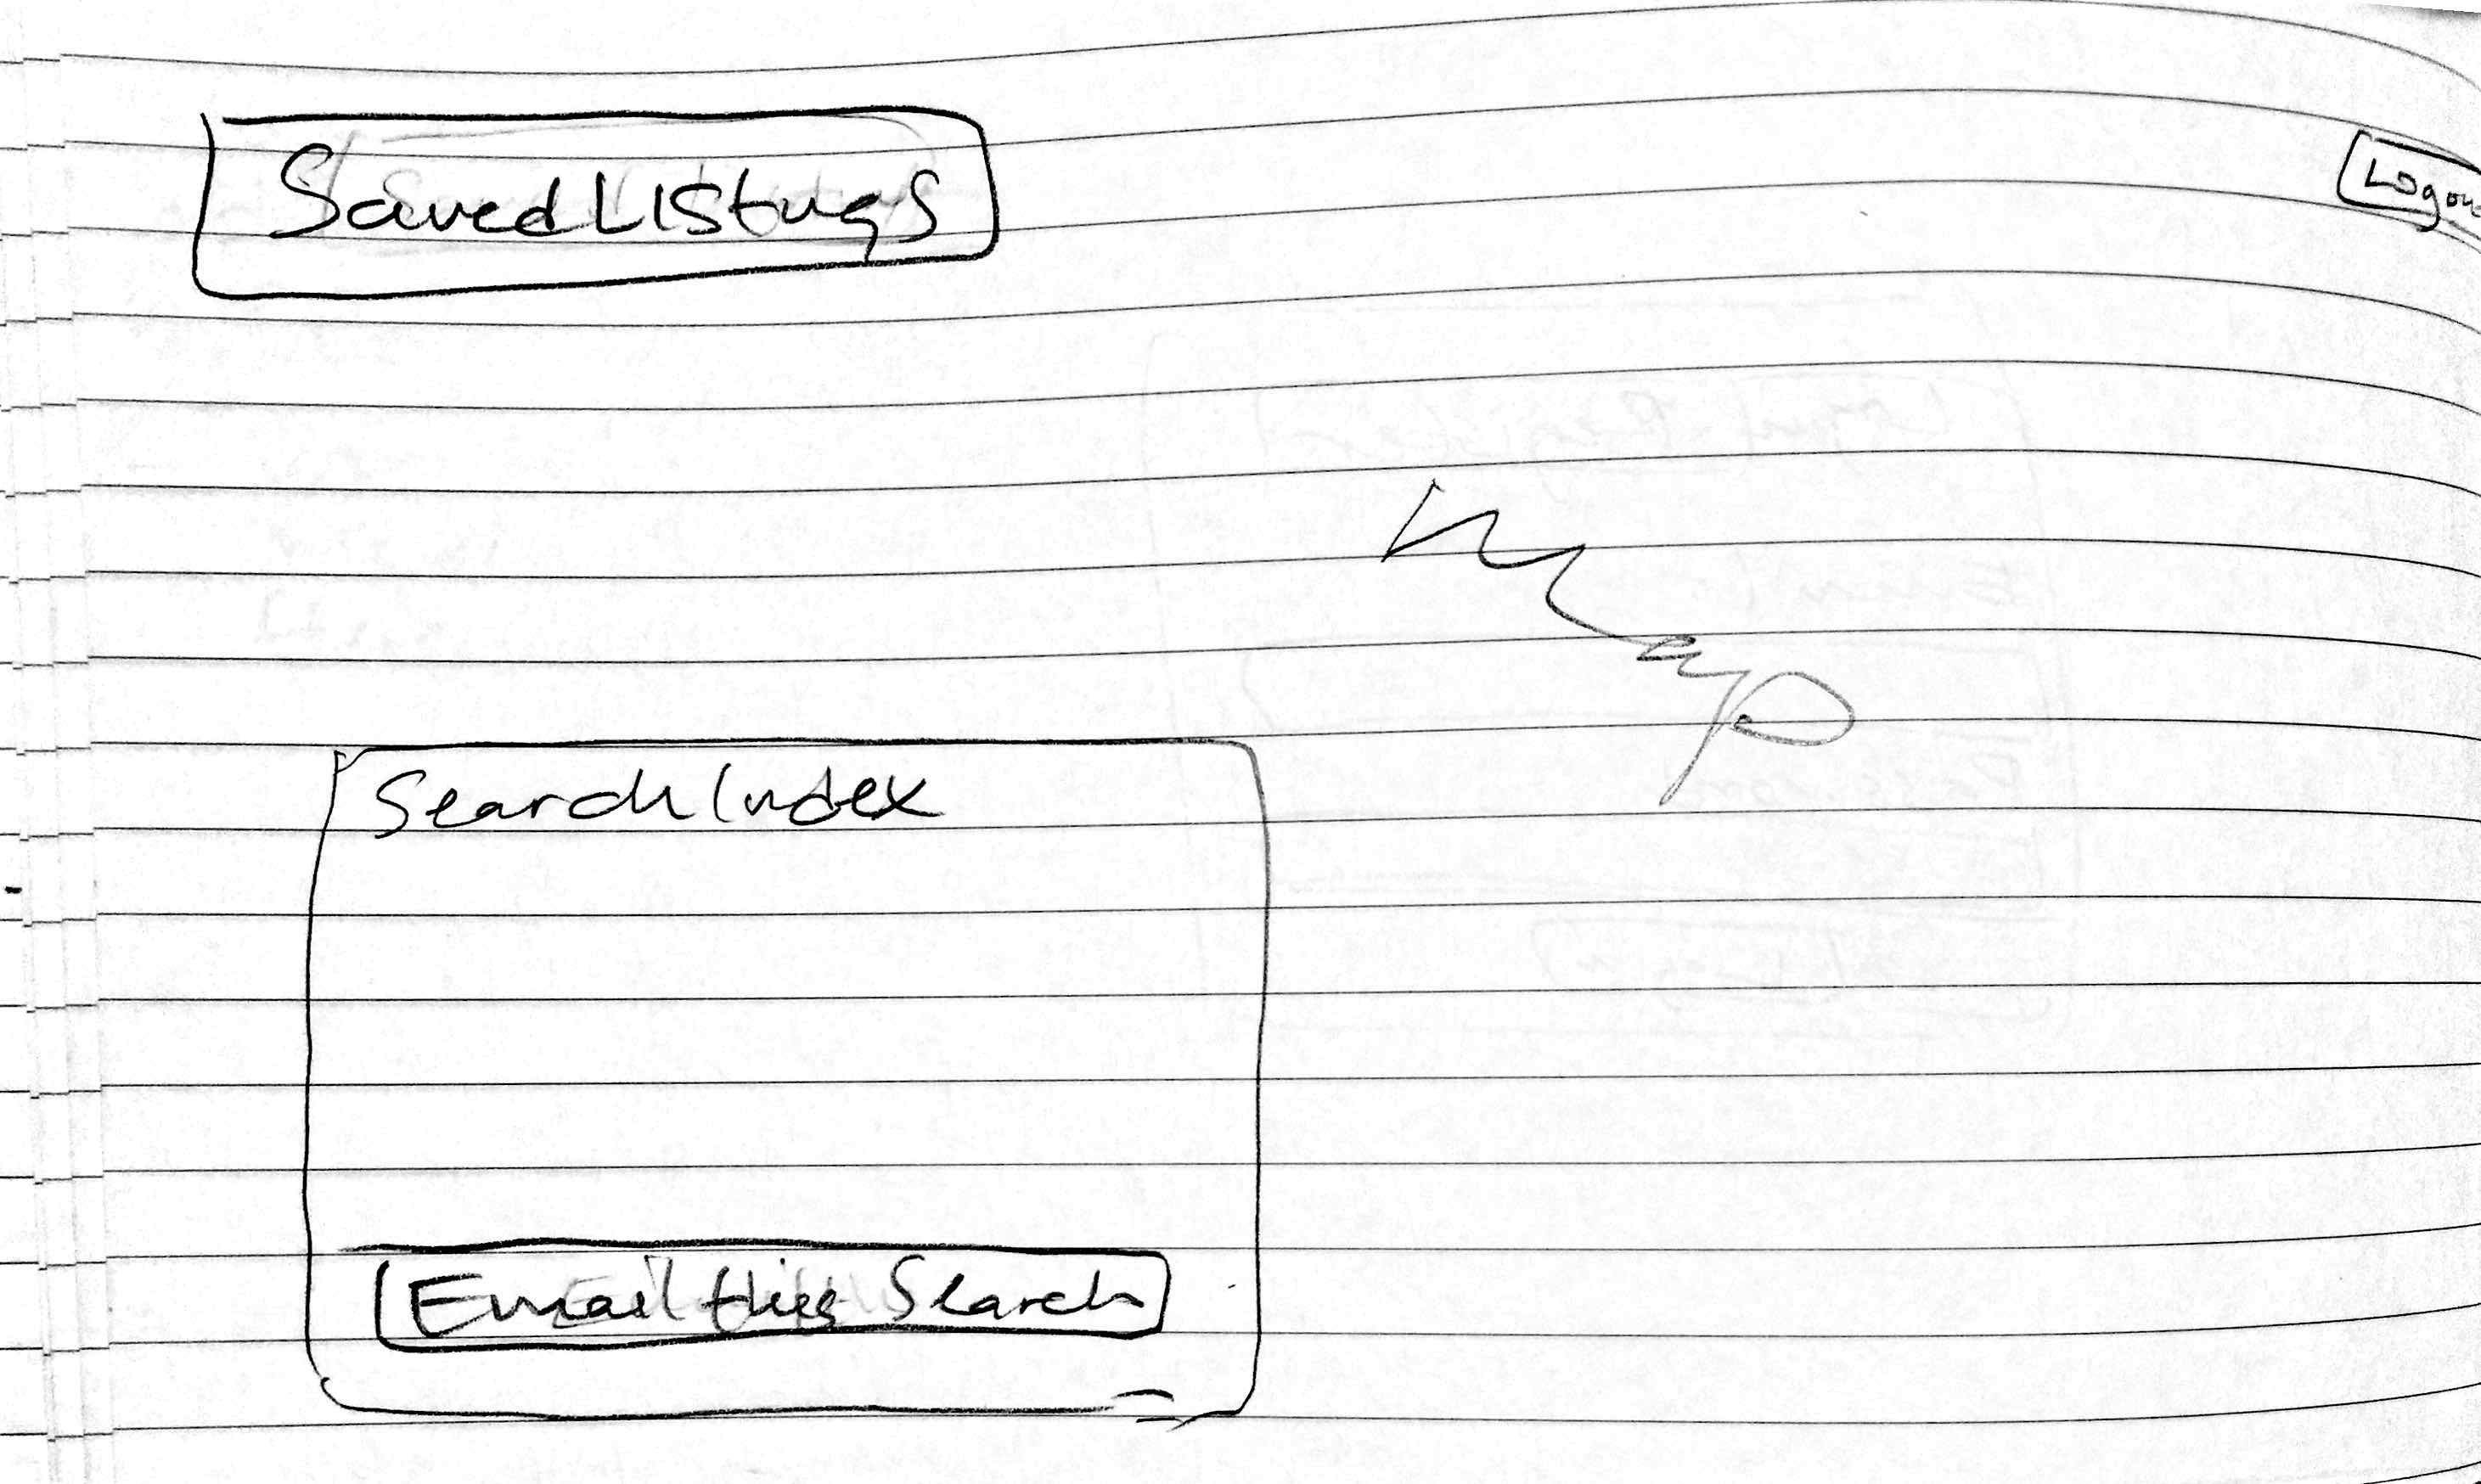 Saved Listings
Logou
Map
Search Index
Email this Search